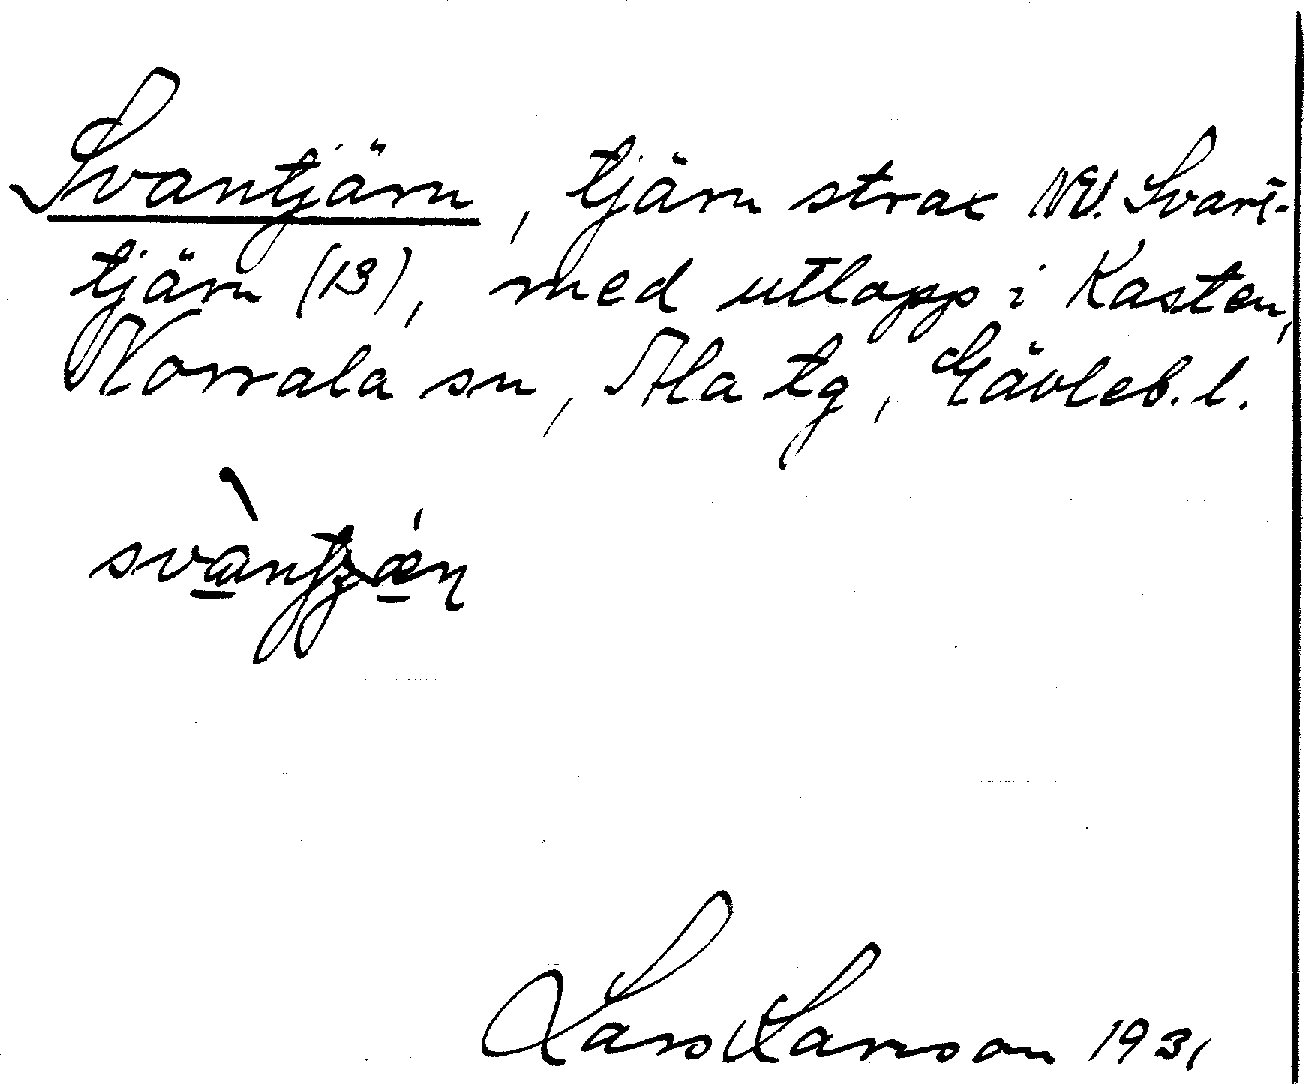 Svantjärn, tjärn strax NV. Svart-
tjärn (13), med utlopp i Kasten,
Norrala sn, Ala tg, Gävleb. l.
Lars Larsson 1931